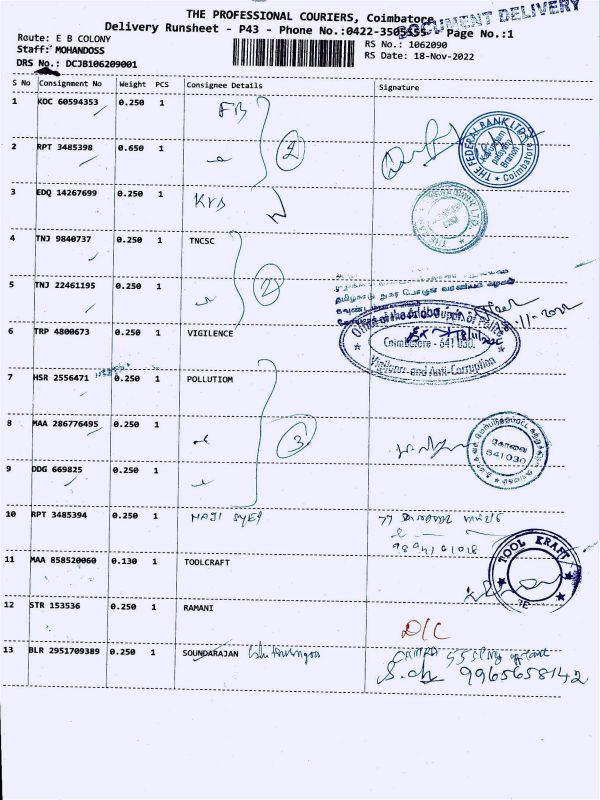 THE PROFESSIONAL COURIERS, Coimbatore
DOCUMENT DELIVERY
Delivery Runsheet - P43 - Phone No.:0422-3505555 Page No.:1
Route: E B COLONY RS No.: 1062090
Staff: MOHANDOSS RS Date: 18-Nov-2022
DRS No.: DCJB106209001
S No Consignment No Weight PCS Consignee Details Signature
1 KOC 60594353 0.250 1 FB
2 RPT 3485398 0.650 1 2
THE FEDERAL BANK LTD. Branch Coimbatore
3 EDQ 14267699 0.250 1 KVB
4 TNJ 9840737 0.250 1 TNCSC
5 TNJ 22461195 0.250 1 2
6 TRP 4800673 0.250 1 VIGILENCE
Coimbatore - 641 030.
Vigilance and Anti-Corruption
7 HSR 2556471 0.250 1 POLLUTIOM
8 MAA 286776495 0.250 1 3
கோவை
641 030
9 DDG 669825 0.250 1
10 RPT 3485394 0.250 1 HAJI SYED
11 MAA 858520060 0.130 1 TOOLCRAFT
TOOL KRAFT
12 STR 153536 0.250 1 RAMANI
D/C
13 BLR 2951709389 0.250 1 SOUNDARAJAN
9965658142